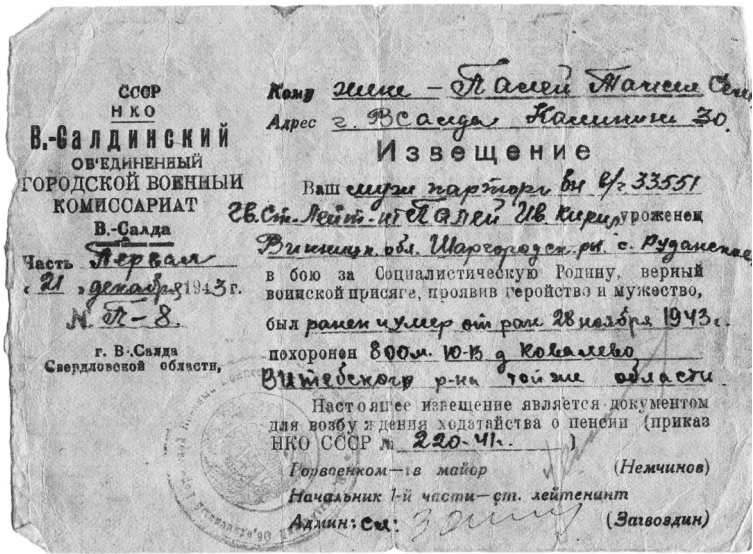 СССР
НКО
В.-Салдинский
ОБ'ЕДИНЕННЫЙ
ГОРОДСКОЙ ВОЕННЫЙ
КОМИССАРИАТ
В.-Салда
Часть Первая
„21" декабря 1943 г.
№ П-8.
г. В.-Салда
Свердловской области,
Кому жене – Палей
Адрес г. ВСалда Калинина 30.
Извещение
Ваш муж парторг в/ч 33551
Гв. Ст. Лейт-нт Палей Ив. Кирил. уроженец
Винницк. обл. Шаргородск. рн. с.
в бою за Социалистическую Родину, верный
воинской присяге, проявив геройство и мужество,
был ранен и умер от ран 28 ноября 1943 г.
похоронен 800м. Ю-В д Ковалево
Витебского р-на той же области
Настоящее извещение является документом
для возбуждения ходатайства о пенсии (приказ
НКО СССР № 220-41г. )
Горвоенком—гв майор (Немчинов)
Начальник 1-й части—ст. лейтенант
Админ: сл: (Загвоздин)